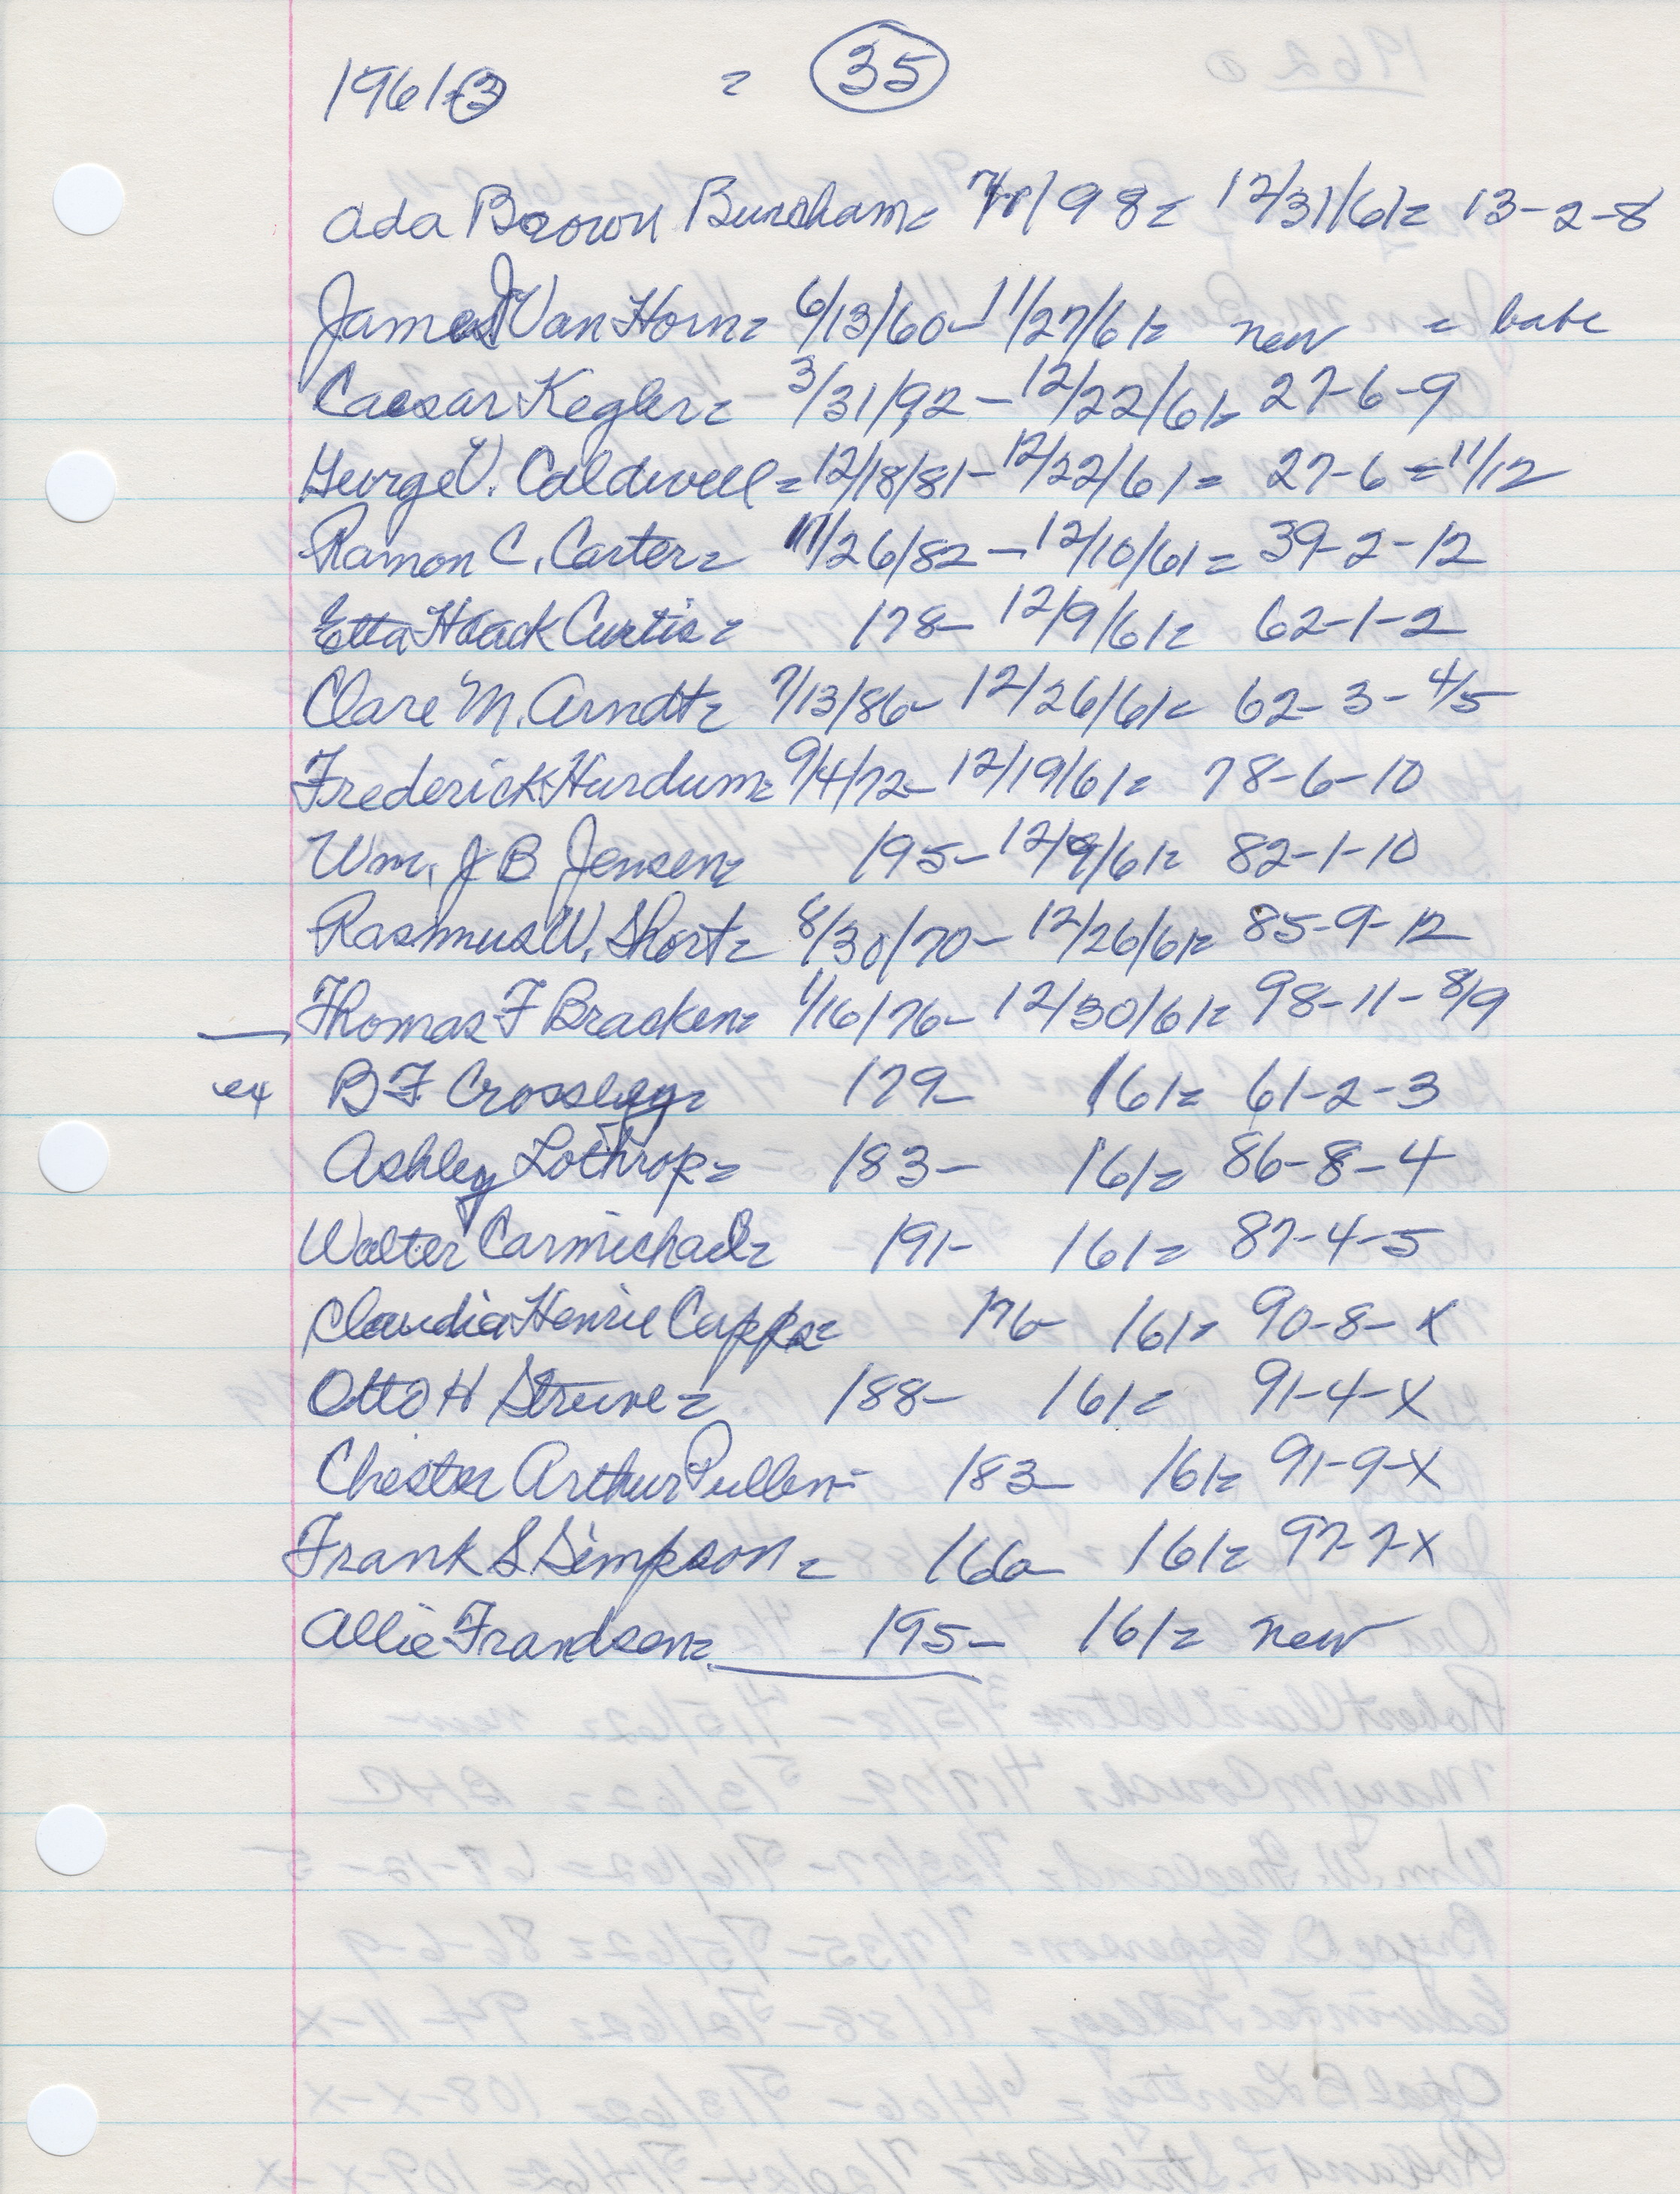 1961 ③ = 35
Ada Brown Burcham= 7/ /98= 12/31/61= 13-2-8
James J Van Horn= 6/13/60- 11/27/61= new = babe
Caesar Kegler= - 3/31/92 - 12/22/61= 27-6-9
George V. Caldwell = 12/18/81- 12/22/61= 27-6 = 11/12
Ramon C. Carter= 11/26/82 - 12/10/61= 39-2-12
Etta Haack Curtis= 178- 12/9/61= 62-1-2
Clare M. Arndt= 7/13/86- 12/26/61= 62-3-4/5
Frederick Hurdum= 9/4/72- 12/19/61= 78-6-10
Wm. J B Jensen= 195- 12/9/61= 82-1-10
Rasmus W. Short= 8/30/70- 12/26/61= 85-9-12
Thomas F Bracken= 1/16/76- 12/30/61= 98-11-8/9
ex B F Crossley= 179- 161= 61-2-3
Ashley Lothrop= 183- 161= 86-8-4
Walter Carmichael= 191- 161= 87-4-5
Claudia Henrie Capps= 176- 161= 90-8-X
Otto H Struve= 188- 161= 91-4-X
Chester Arthur Pullen= 183- 161= 91-9-X
Frank S Simpson= 166- 161= 97-7-X
Allie Frandsen= 195- 161= new